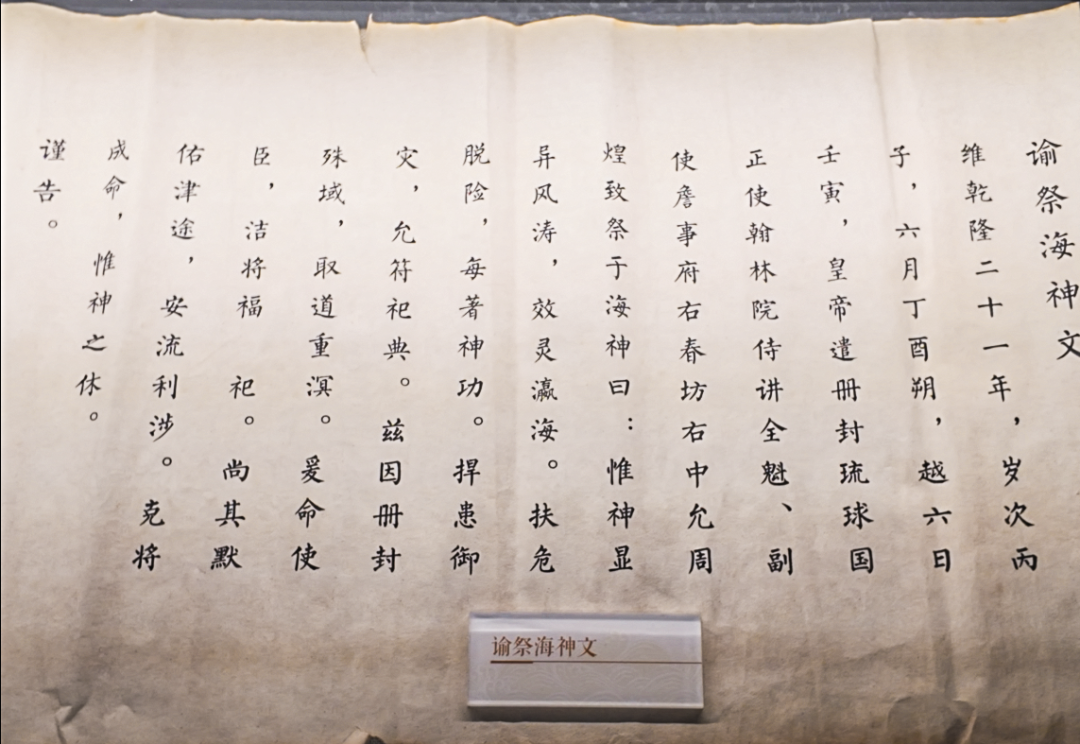 谕祭海神文
维乾隆二十一年，岁次丙
子，六月丁酉朔，越六日
壬寅，皇帝遣册封琉球国
正使翰林院侍讲全魁、副
使詹事府右春坊右中允周
煌致祭于海神曰：惟神显
异风涛，效灵瀛海。扶危
脱险，每著神功。捍患御
灾，允符祀典。兹因册封
殊域，取道重溟。爰命使
臣，洁将福祀。尚其默
佑津途，安流利涉。克将
成命，惟神之休。
谨告。
谕祭海神文